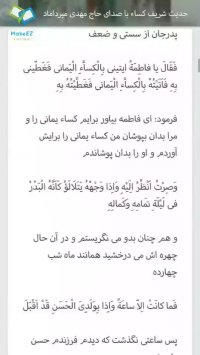 حدیث شریف کساء با صدای حاج مهدی میرداماد
MakeEZ
پدرجان از سستی و ضعف
فَقَالَ يا فاطِمَةُ ايتينى بِالْكِساَّءِ الْيَمانى فَغَطّينى
بِهِ فَاَتَيْتُهُ بِالْكِساَّءِ الْيَمانى فَغَطَّيْتُهُ بِهِ
فرمود: ای فاطمه بیاور برایم کساء یمانی را و
مرا بدان بپوشان من کساء یمانی را برایش
آوردم و او را بدان پوشاندم
وَصِرْتُ اَنْظُرُ اِلَيْهِ وَاِذا وَجْهُهُ يَتَلاَْلَؤُ كَاَنَّهُ الْبَدْرُ
فى لَيْلَةِ تَمامِهِ وَكَمالِهِ
و هم چنان بدو می نگریستم و در آن حال
چهره اش می درخشید همانند ماه شب
چهارده
فَما كانَتْ اِلاّ ساعَةً وَاِذا بِوَلَدِىَ الْحَسَنِ قَدْ اَقْبَلَ
پس ساعتی نگذشت که دیدم فرزندم حسن